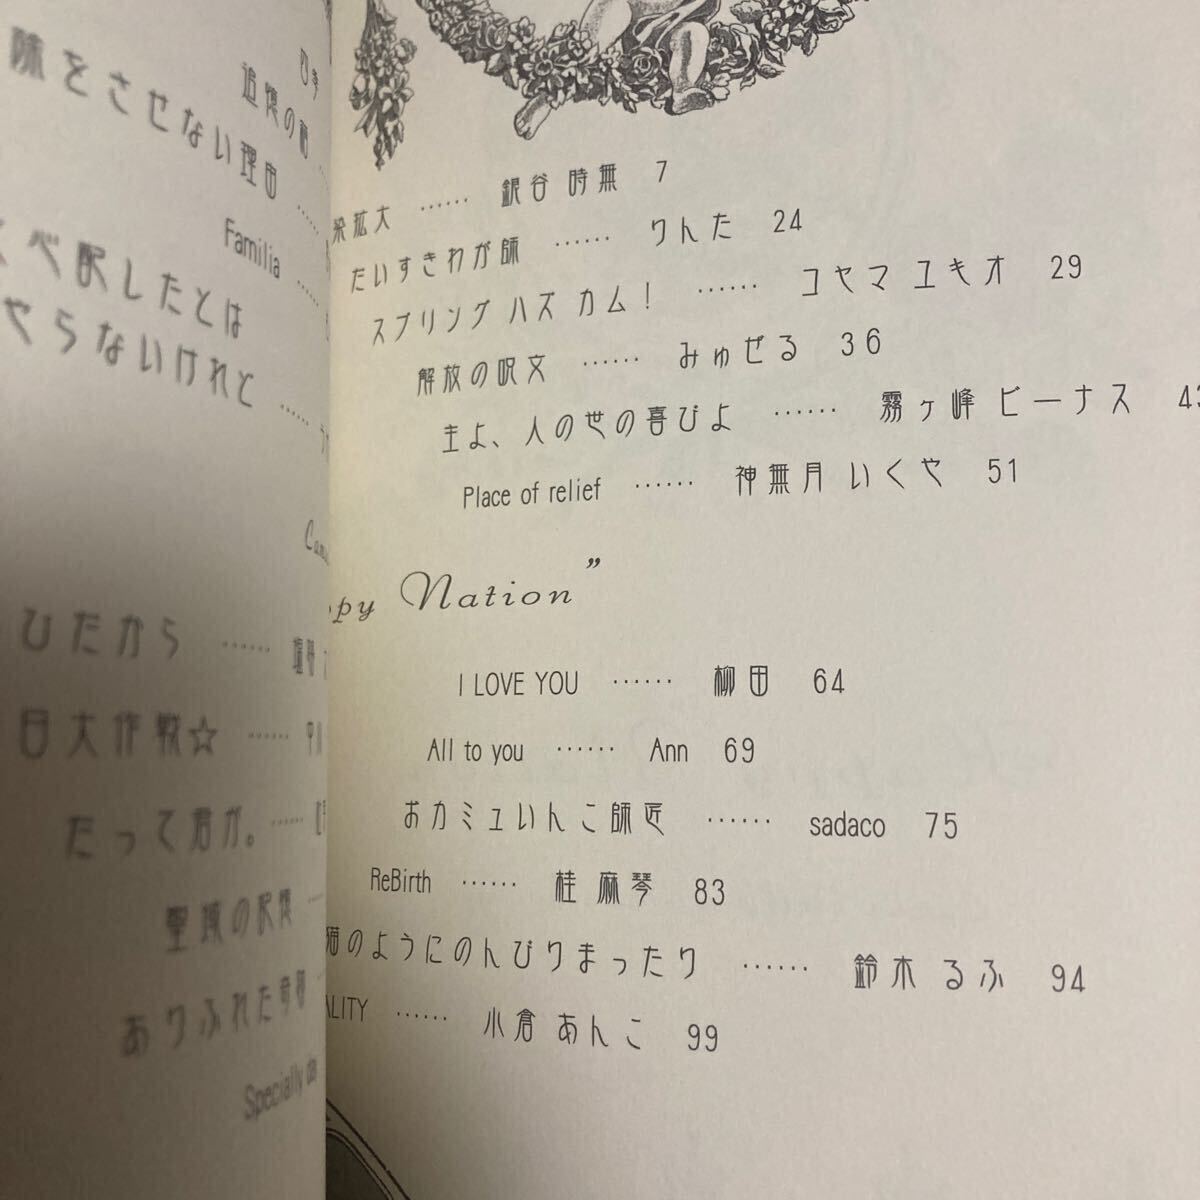 味をさせない理由 ……
Familia ……
べ配したとは
やらないけれど ……
ひだから ……
日大作戦☆ ……
だって君が。……
聖域の記憶 …
ありふれた奇跡 …
Specially
拡大 …… 銀谷 時無 7
だいすきわが師 …… りんた 24
スプリング ハズ カム! …… コヤマ ユキオ 29
解放の呪文 …… みゅぜる 36
主よ、人の世の喜びよ …… 霧ヶ峰 ビーナス 43
Place of relief …… 神無月 いくや 51
ppy Nation”
I LOVE YOU …… 柳田 64
All to you …… Ann 69
おカミュいんこ師匠 …… sadaco 75
ReBirth …… 桂 麻琴 83
猫のようにのんびりまったり …… 鈴木 るふ 94
ALITY …… 小倉 あんこ 99